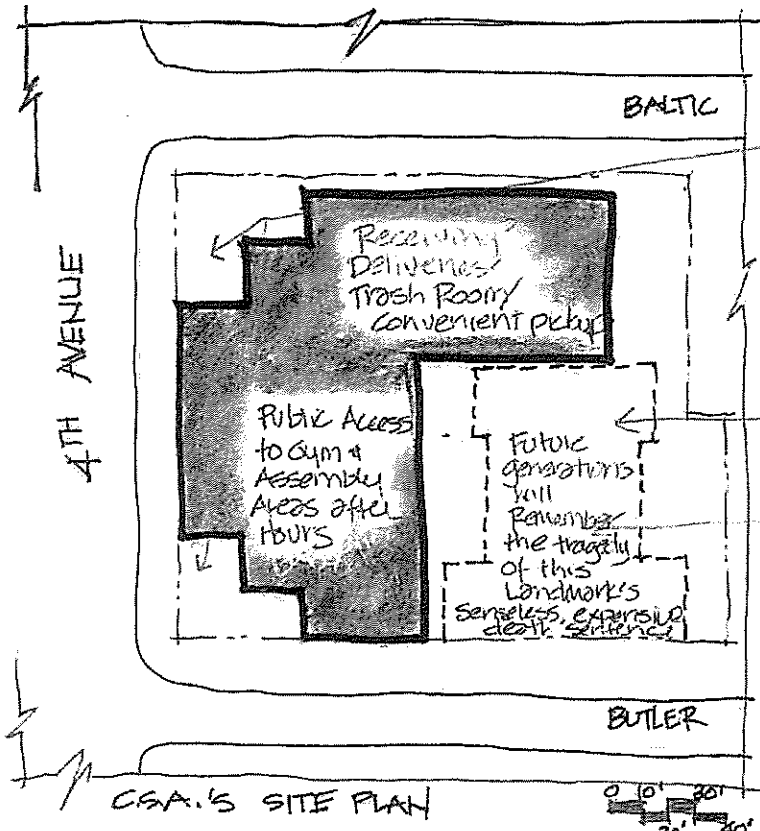 BALTIC
4TH AVENUE
Receiving/
Deliveries/
Trash Room/
Convenient pickup
Public Access
to Gym &
Assembly
Areas after
Hours
Future
generations
will
Remember
the tragedy
of this
Landmark's
Senseless, expensive
death sentence
BUTLER
C.S.A.'S SITE PLAN
0 10' 20' 30' 40'